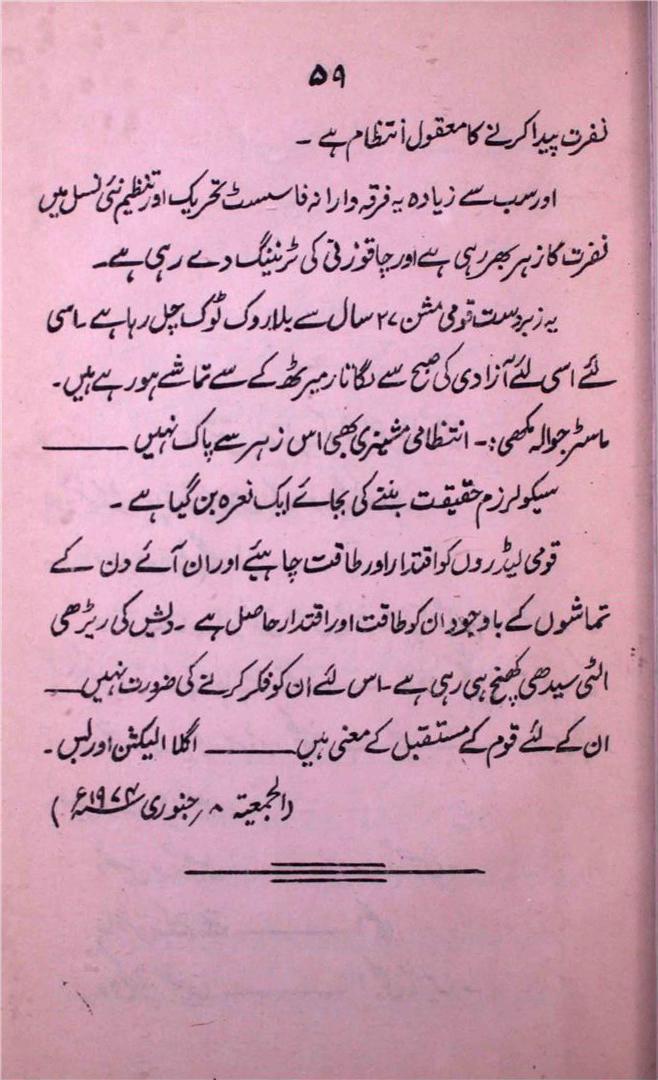 ۵۹
نفرت پیدا کرنے کا معقول انتظام ہے ۔
اور سب سے زیادہ یہ فرقہ وارانہ فاسسٹ تحریک اور تنظیم نئی نسل میں
نفرت کا زہر بھر رہی ہے اور چاقو زنی کی ٹریننگ دے رہی ہے۔
یہ زبردست قومی مشن ۲۷ سال سے بلا روک ٹوک چل رہا ہے ۔ اسی
لئے اسی لئے آزادی کی صبح سے لگاتار میرٹھ کے سے تماشے ہو رہے ہیں۔
ماسٹر جوالہ مکھی :۔ انتظامی مشینری بھی اس زہر سے پاک نہیں ———
سیکولرزم حقیقت بننے کی بجائے ایک نعرہ بن گیا ہے ۔
قومی لیڈروں کو اقتدار اور طاقت چاہئیے اور ان آئے دن کے
تماشوں کے باوجود ان کو طاقت اور اقتدار حاصل ہے ۔ دیش کی ریڑھی
الٹی سیدھی کھنچ ہی رہی ہے ۔ اس لئے ان کو فکر کرنے کی ضرورت نہیں —
ان کے لئے قوم کے مستقبل کے معنی ہیں ——— اگلا الیکشن اور بس ۔
(الجمعیتہ ۸؍ جنوری ۱۹۷۴ء)